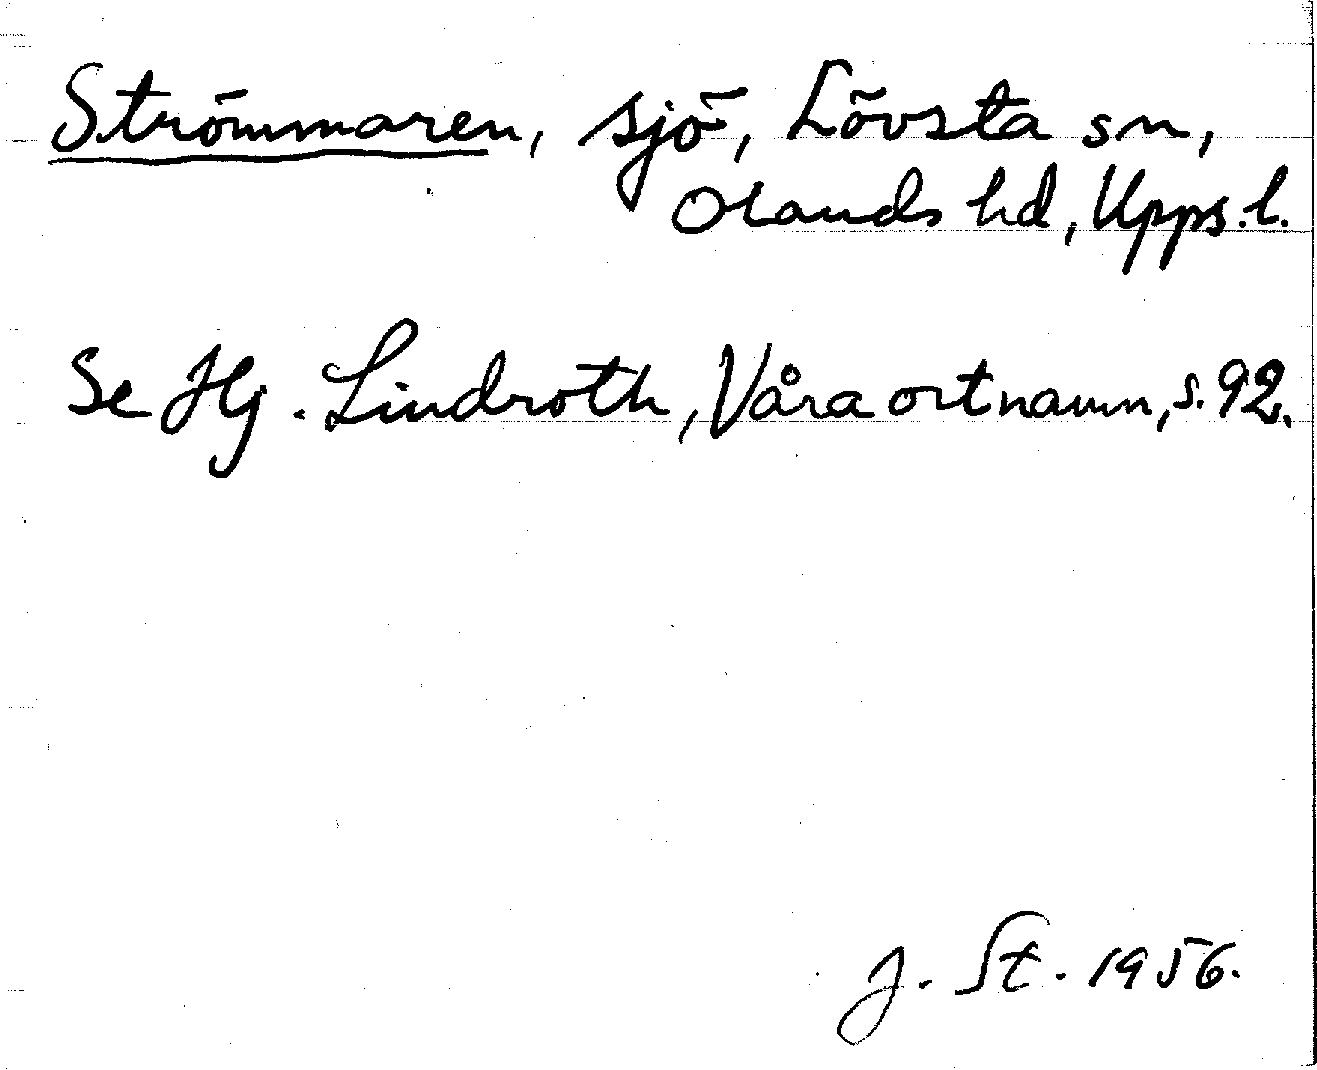 Strömmaren, sjö, Lövsta sn,
Olands hd, Upps. l.
Se Hj. Lindroth, Våra ortnamn, s. 92.
J. St. 1956.